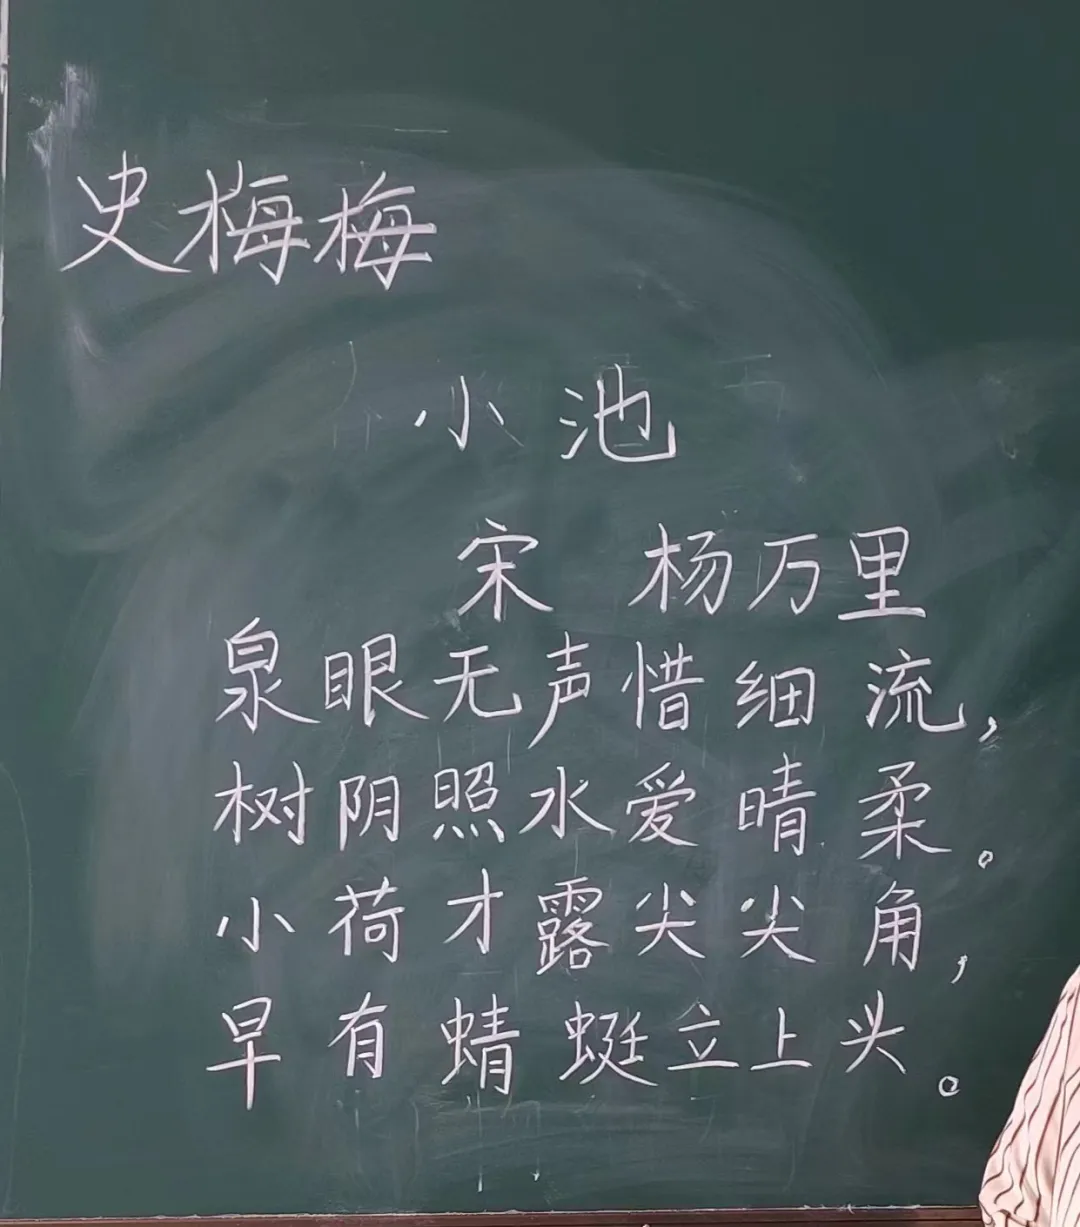 史梅梅
小池
宋 杨万里
泉眼无声惜细流，
树阴照水爱晴柔。
小荷才露尖尖角，
早有蜻蜓立上头。